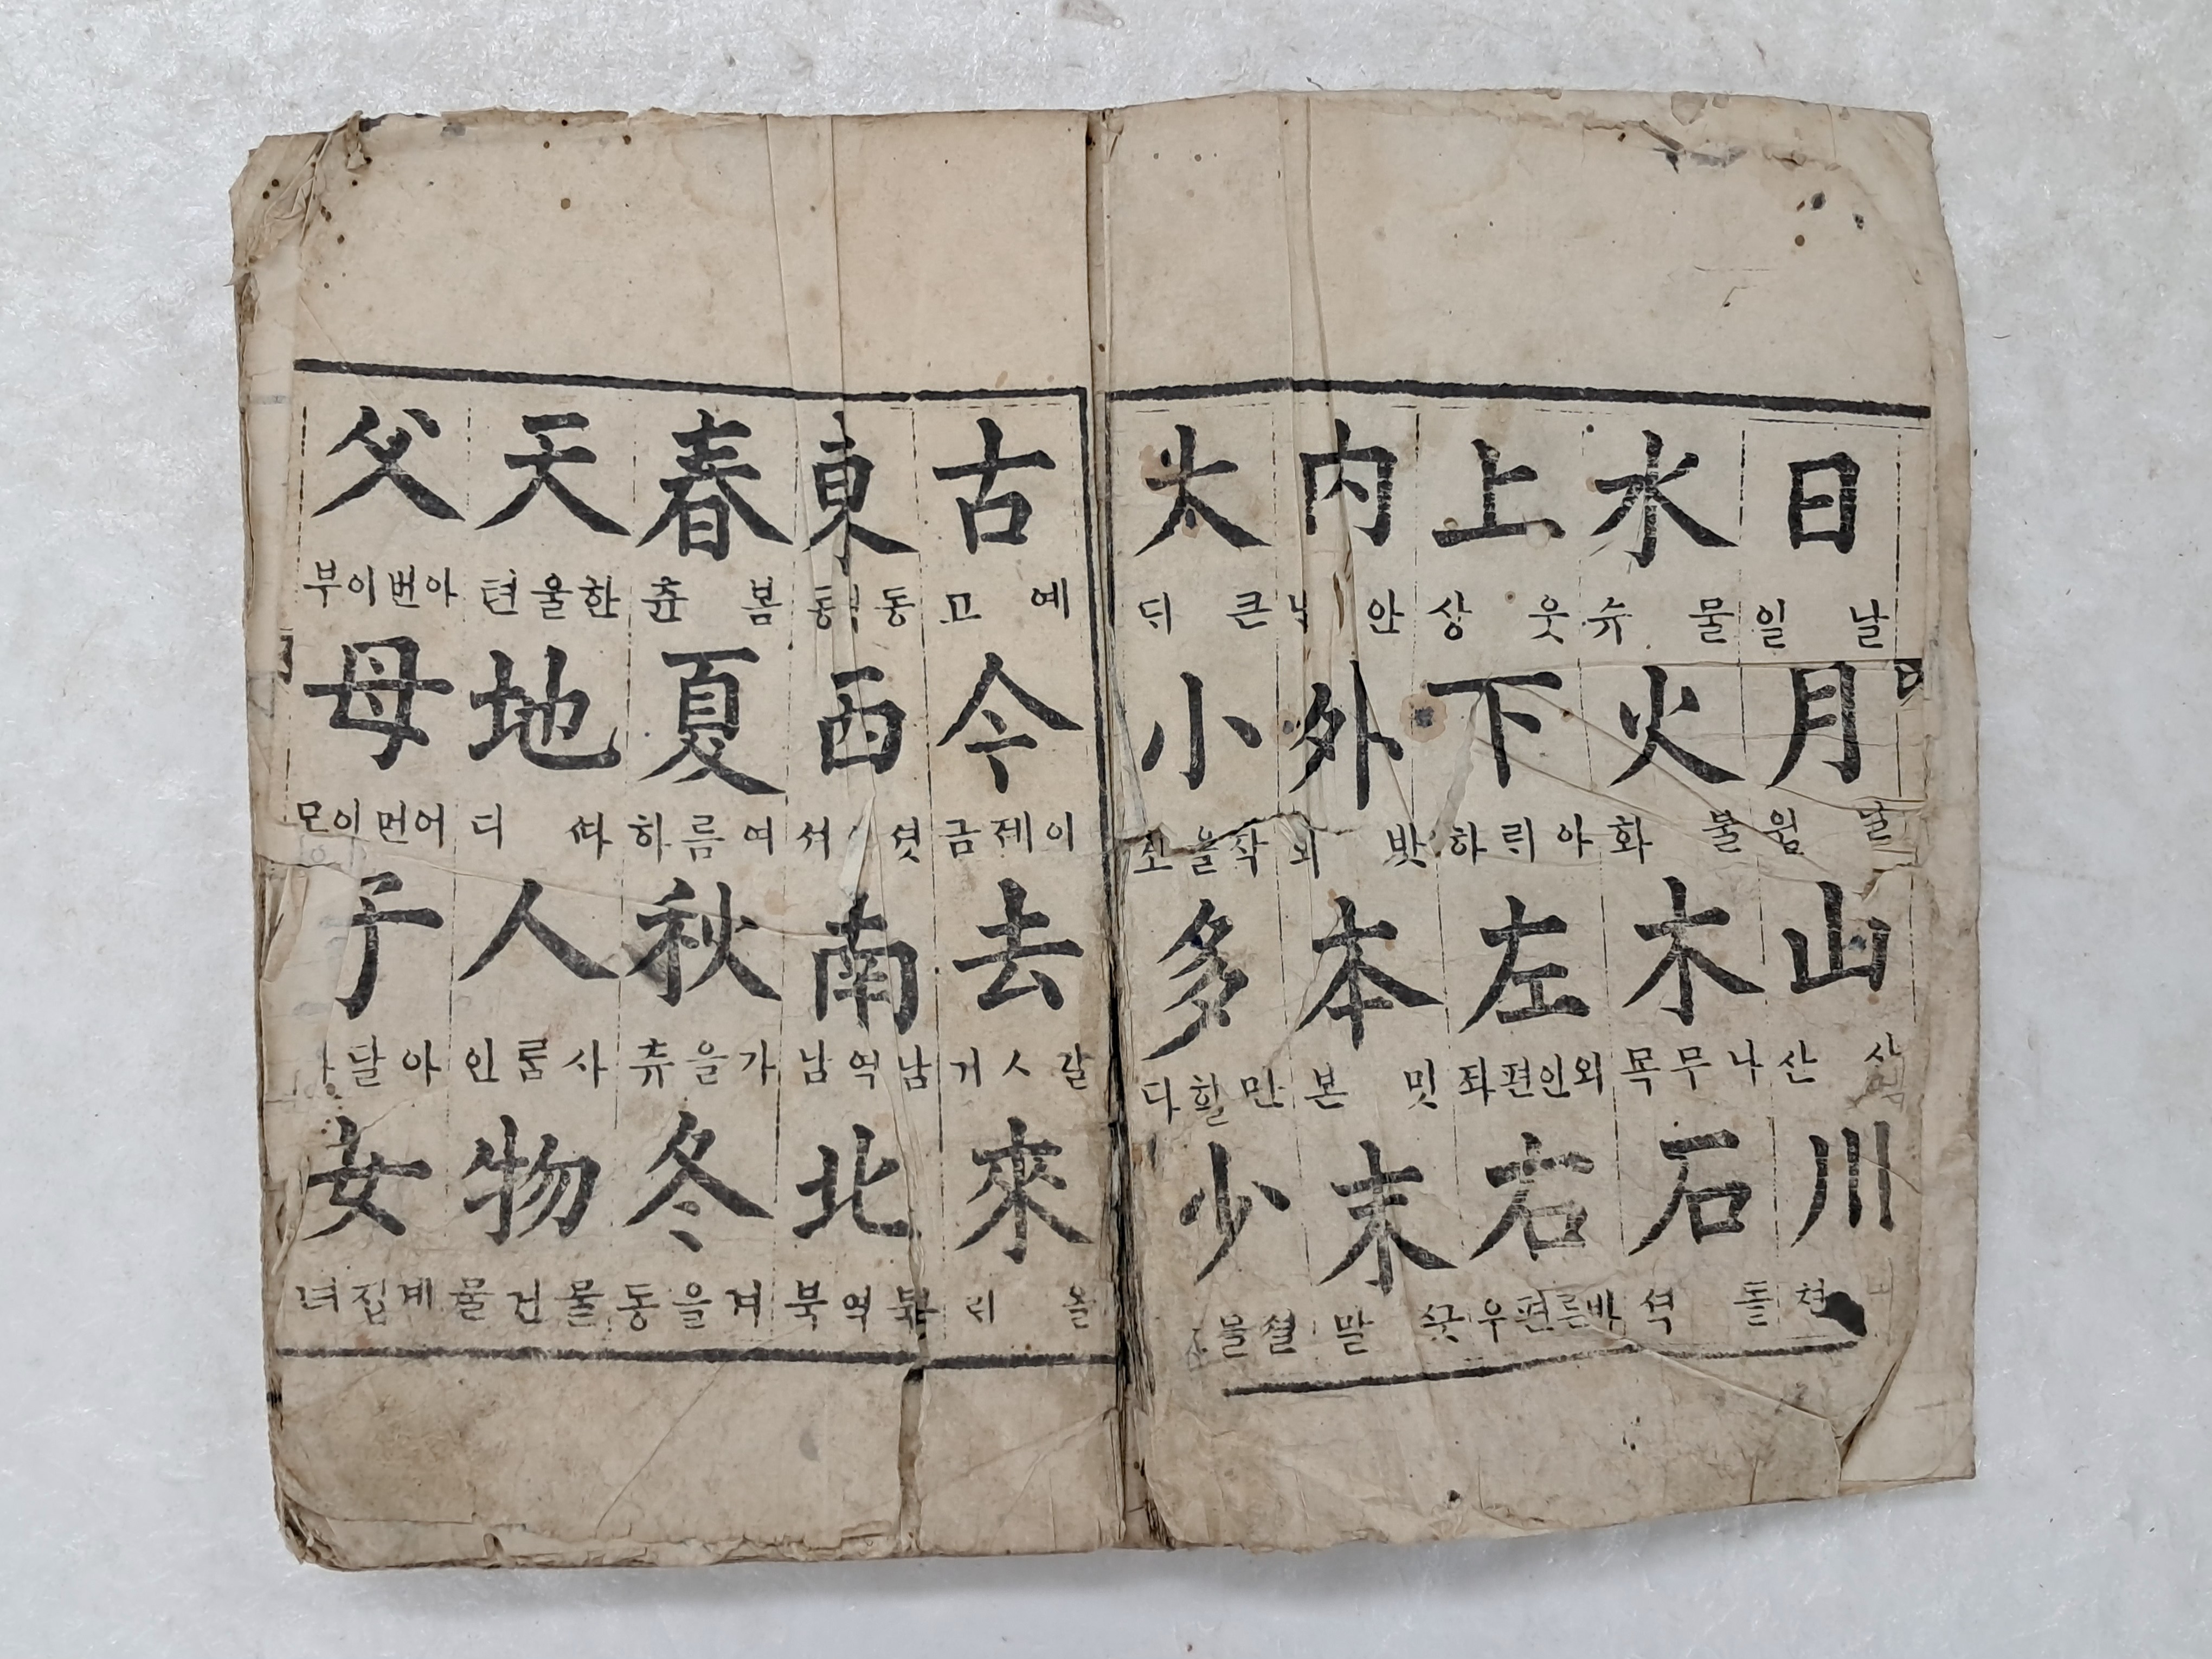 日 날 일 月 달 월 山 산 川 쳔
水 물 슈 火 불 화 木 나무 목 石 돌 셕
上 웃 상 下 아릐 하 左 외인편 좌 右 바른편 우
內 안 外 밧 외 本 밋 본 末 ᄭᅳᆺ 말
大 큰 ᄃᆡ 小 작을 소 多 만흘 다 少
古 예 고 今 이제 금 去 갈 거 來 올 ᄅᆡ
東 동 동 西 셧 셔 南 남역 남 北 북역 북
春 봄 츈 夏 여름 하 秋 가을 츄 冬 겨을 동
天 한울 텬 地 ᄯᅡ 디 人 사룸 인 物 물건 물
父 아번이 부 母 어먼이 모 子 아달 女 계집 녀